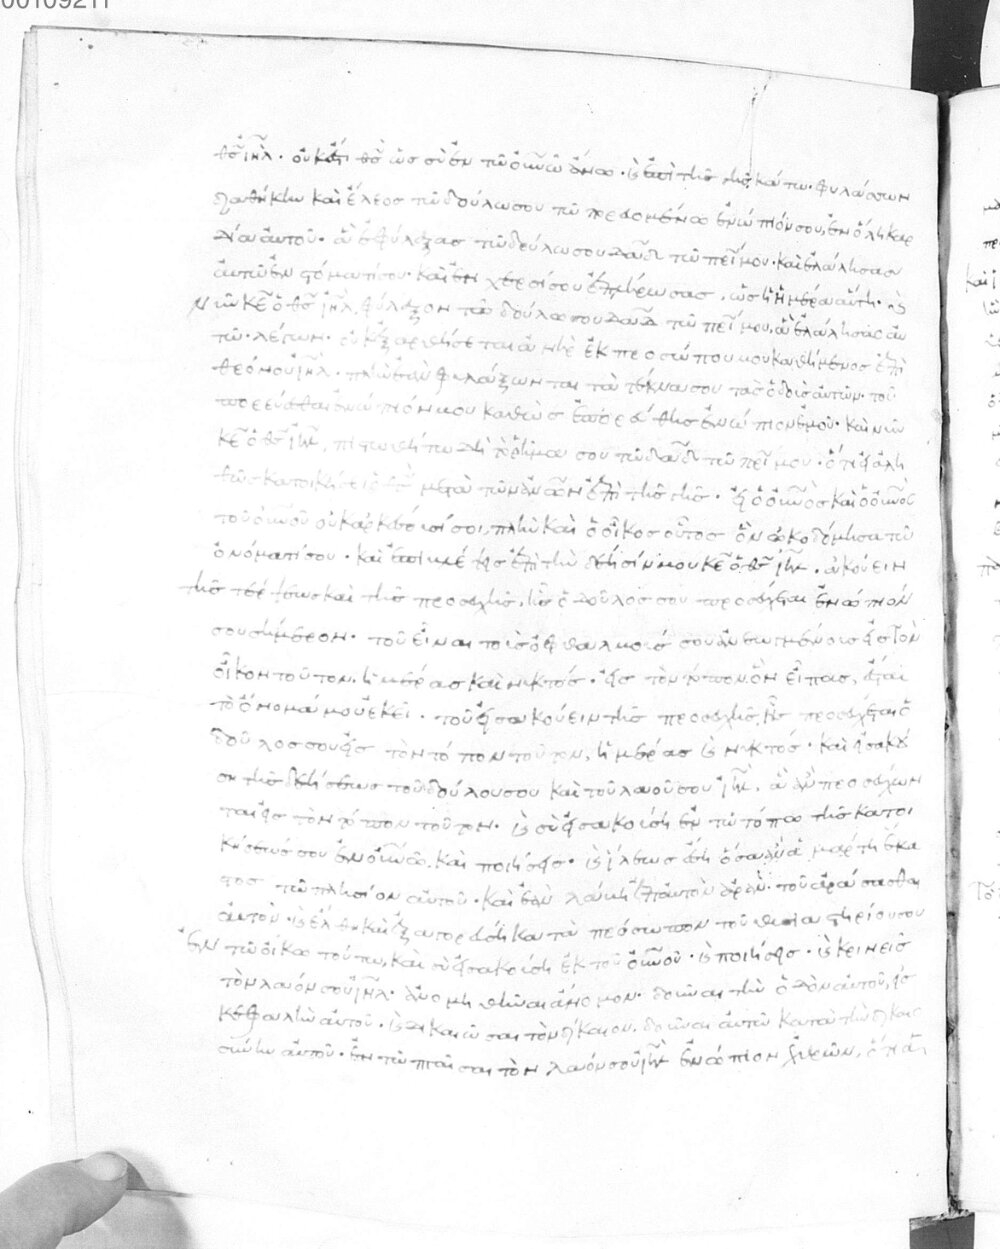 00109211
θς ιηλ. οὐκ ἔστι θς ὡς σὺ ἐν τῶ οὐνῶ ἄνω. καὶ ἐπὶ τῆς γῆς κάτω. φυλάσσων
διαθήκην καὶ ἔλεος τῶ δούλω σου τῶ πορευομένω ἐνώπιόν σου, ἐν ὅλη καρ
δία αὐτοῦ. ἃ ἐφύλαξας τῶ δούλω σου δαδ τῶ πρί μου. καὶ ἐλάλησας
αὐτῶ ἐν στόματί σου. καὶ ἐν χερσί σου ἐπλήρωσας, ὡς ἡ ἡμέρα αὕτη. καὶ
νῦν κε ὁ θς ιηλ, φύλαξον τῶ δούλω σου δαδ τῶ πρί μου, ἃ ἐλάλησας αὐ
τῶ. λέγων. οὐκ ἐξαρθήσεταί ἀνὴρ ἐκ προσώπου μου καθήμενος ἐπὶ
θρόνου ιηλ. πλὴν ἐὰν φυλάξωνται τὰ τέκνα σου τὰς ὁδοὺς αὐτῶν. τοῦ
πορεύεσθαι ἐνώπιόν μου καθὼς ἐπορεύθης ἐνώπιον ἐμοῦ. καὶ νῦν
κε ὁ θς ιηλ, πιστωθήτω δὴ τὸ ῥῆμά σου τῶ δαδ τῶ πρί μου. ὅτι εἰ ἀλη
θῶς κατοικήσει ὁ θς μετὰ τῶν ἀνων ἐπὶ τῆς γῆς. εἰ ὁ οὐνὸς καὶ ὁ οὐνὸς
τοῦ οὐνοῦ οὐκ ἀρκέσουσί σοι, πλὴν καὶ ὁ οἶκος οὗτος ὃν ὠκοδόμησα τῶ
ὀνόματί σου. καὶ ἐπιβλέψεις ἐπὶ τὴν δέησίν μου κε ὁ θς ιηλ. ἀκούειν
τῆς τέρψεως καὶ τῆς προσευχῆς, ἧς ὁ δοῦλός σου προσεύχεται ἐνώπιόν
σου σήμερον. τοῦ εἶναι τοὺς ὀφθαλμούς σου ἀνεωγμένους εἰς τὸν
οἶκον τοῦτον, ἡμέρας καὶ νυκτός. εἰς τὸν τόπον, ὃν εἶπας, ἔσται
τὸ ὄνομά μου ἐκεῖ. τοῦ εἰσακούειν τῆς προσευχῆς, ἧς προσεύχεται ὁ
δοῦλός σου εἰς τὸν τόπον τοῦτον, ἡμέρας καὶ νυκτός. καὶ εἰσακού
ση τῆς δεήσεως τοῦ δούλου σου καὶ τοῦ λαοῦ σου ιηλ, ἃ ἂν προσεύξων
ται εἰς τὸν τόπον τοῦτον. καὶ σὺ εἰσακούση ἐν τῶ τόπω τῆς κατοι
κήσεώς σου ἐν οὐνῶ. καὶ ποιήσεις. καὶ ἵλεως ἔση ὅσα ἂν ἁμάρτη ἕκα
στος τῶ πλησίον αὐτοῦ. καὶ ἐὰν λάβη ἐπ' αὐτὸν ἀρὰν. τοῦ ἀράσασθαι
αὐτὸν. καὶ ἔλθη καὶ ἐξαγορεύση κατὰ πρόσωπον τοῦ θυσιαστηρίου σου
ἐν τῶ οἴκω τούτω, καὶ σὺ εἰσακούση ἐκ τοῦ οὐνοῦ. καὶ ποιήσεις. καὶ κρινεῖς
τὸν λαόν σου ιηλ. ἄνομηθῆναι ἄνομον. δοῦναι τὴν ὁδὸν αὐτοῦ, εἰς
κεφαλὴν αὐτοῦ. καὶ δικαιῶσαι τὸν δίκαιον. δοῦναι αὐτῶ κατὰ τὴν δικαιο
σύνην αὐτοῦ. ἐν τῶ πταῖσαι τὸν λαόν σου ιηλ ἐνώπιον ἐχθρῶν, ὅτι ἁ